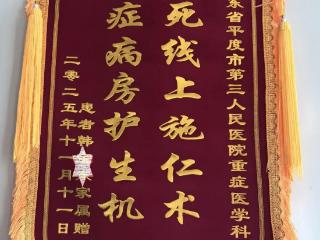 东省平度市第三人民医院重症医学科
死线上施仁术
症病房护生机
患者韩 家属赠
二零二五年十一月十一日